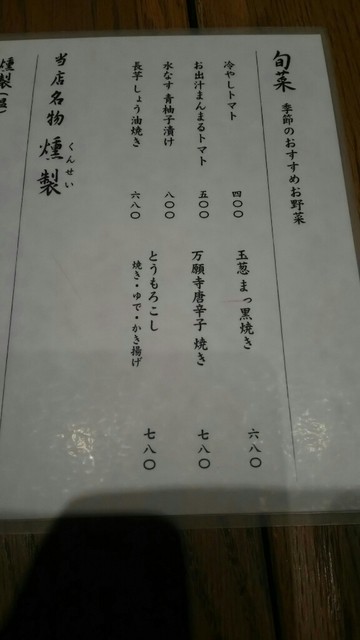 旬菜 季節のおすすめお野菜
冷やしトマト 四〇〇
お出汁まんまるトマト 五〇〇
水なす青柚子漬け 八〇〇
長芋しょう油焼き 六八〇
玉葱まっ黒焼き 六八〇
万願寺唐辛子 焼き 七八〇
とうもろこし 七八〇
焼き・ゆで・かき揚げ
当店名物 燻製
くんせい
燻製(温)